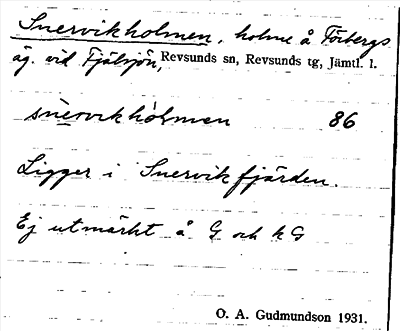 Snervikholmen, holme å Förbergs
äg. vid Fjälsjön, Revsunds sn, Revsunds tg, Jämtl. l.
snervikhólmen 86
Ligger i Snervikfjärden.
Ej utmärkt å G och kG
O. A. Gudmundson 1931.